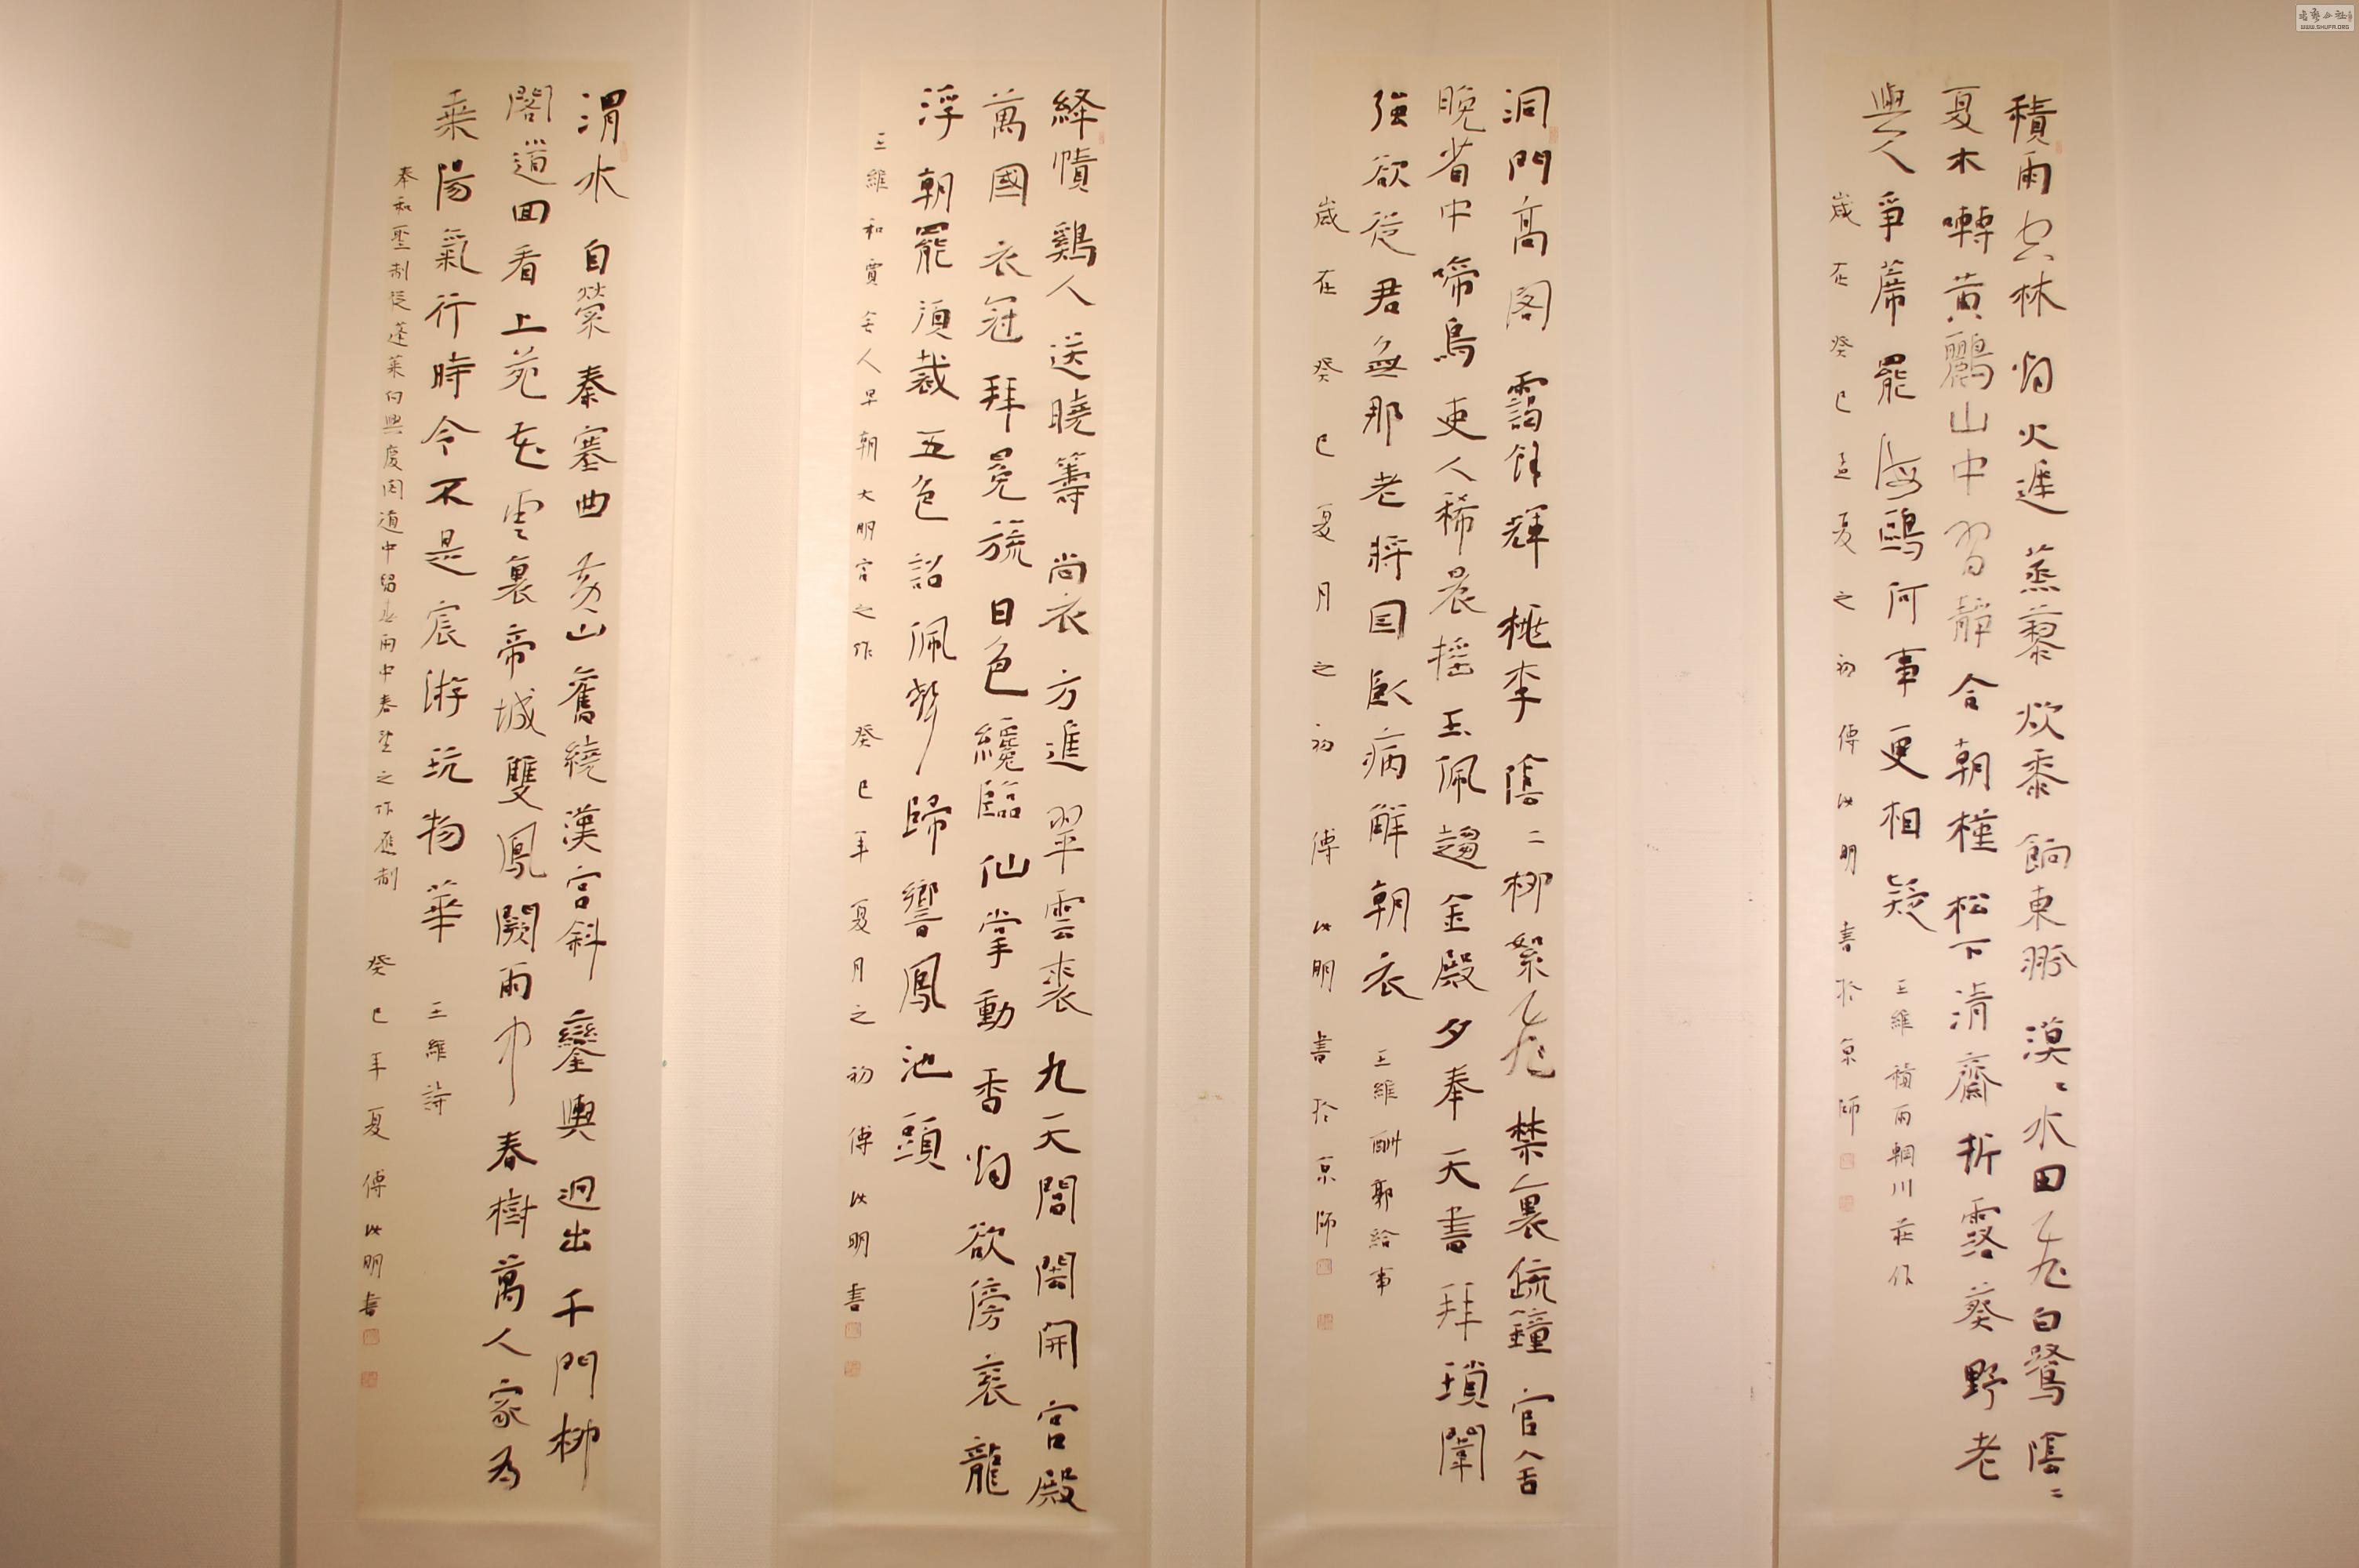 積雨空林烟火遲蒸藜炊黍餉東菑漠〻水田飛白鷺陰〻
夏木囀黃鸝山中習靜合朝槿松下清齋折露葵野老
與人爭席罷海鷗何事更相疑 王維積雨輞川莊作
歲在癸巳孟夏之初傅以明書於京師
洞門高閣靄餘輝桃李陰〻柳絮飛禁裏疏鐘官舍
晚省中啼鳥吏人稀晨搖玉佩趨金殿夕奉天書拜瑣闈
強欲從君無那老將因臥病解朝衣 王維酬郭給事
歲在癸巳夏月之初傅以明書於京師
絳幘鷄人送曉籌尚衣方進翠雲裘九天閶闔開宮殿
萬國衣冠拜冕旒日色纔臨仙掌動香烟欲傍袞龍
浮朝罷須裁五色詔佩聲歸嚮鳳池頭
王維和賈舍人早朝大明宮之作 癸巳年夏月之初傅以明書
渭水自縈秦塞曲黃山舊繞漢宮斜鑾輿迥出千門柳
閣道回看上苑花雲裏帝城雙鳳闕雨中春樹萬人家為
乘陽氣行時令不是宸游玩物華 王維詩
奉和聖制從蓬萊向興慶閣道中留春雨中春望之作應制 癸巳年夏傅以明書
WWW.SHUFA.ORG